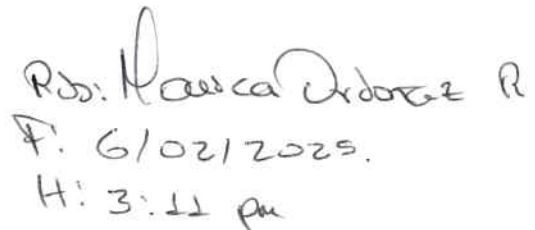 Rdo: Monica Ordoñez R
F: 6/02/2025.
H: 3:11 pm